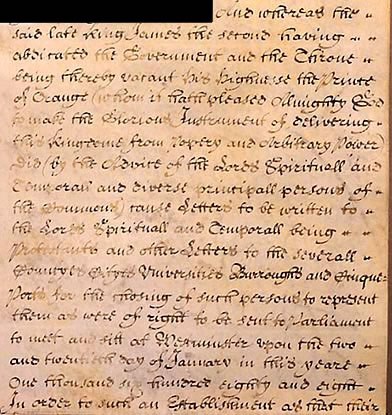 And whereas the
said late King James the second haveing
abdicated the Government and the Throne
being thereby vacant his Highnesse the Prince
of Orange (whom it hath pleased Almighty God
to make the Glorious Instrument of delivering
this Kingdome from Popery and Arbitrary Power)
did (by the Advice of the Lords Spirituall and
Temporall and diverse principall persons of
the Commons) cause Letters to be written to
the Lords Spirituall and Temporall being
Protestants and other Letters to the severall
Countyes Cityes Universities Burroughs and Cinque
Ports for the chosing of such persons to represent
them as were of right to be sent to Parliament
to meet and sitt at Westminster upon the two
and twentieth day of January in this yeare
One thousand six hundred eighty and eight
In order to such an Establishment as that their